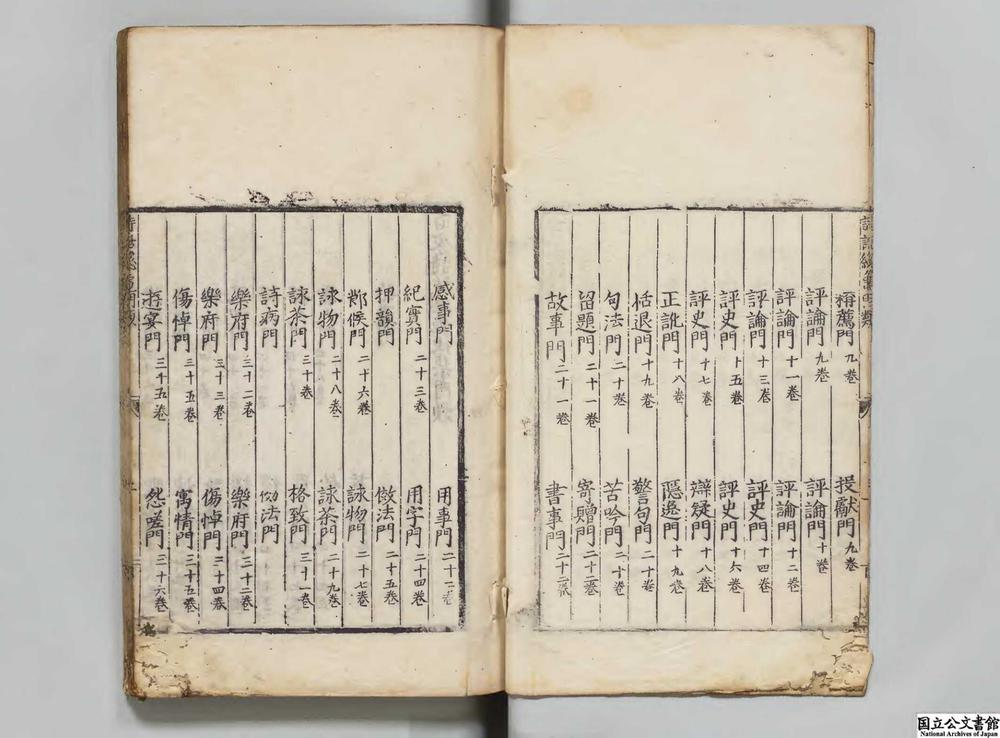 詩話總龜門類
稱薦門 九卷 投獻門 九卷
評論門 九卷 評論門 十卷
評論門 十一卷 評論門 十二卷
評論門 十三卷 評史門 十四卷
評史門 十五卷 評史門 十六卷
評史門 十七卷 辯疑門 十八卷
正訛門 十八卷 隱逸門 十九卷
恬退門 十九卷 警句門 二十卷
句法門 二十卷 苦吟門 二十卷
留題門 二十一卷 寄贈門 二十二卷
故事門 二十一卷 書事門 二十二卷
感事門 用事門 二十二卷
紀實門 二十三卷 用字門 二十四卷
押韻門 傚法門 二十五卷
節候門 二十六卷 詠物門 二十七卷
詠物門 二十八卷 詠茶門 二十九卷
詠茶門 三十卷 格致門 三十一卷
詩病門 法門
樂府門 三十二卷 樂府門 三十二卷
樂府門 三十三卷 傷悼門 三十四卷
傷悼門 三十五卷 寓情門 三十五卷
遊宴門 三十五卷 怨嗟門 三十六卷
国立公文書館
National Archives of Japan